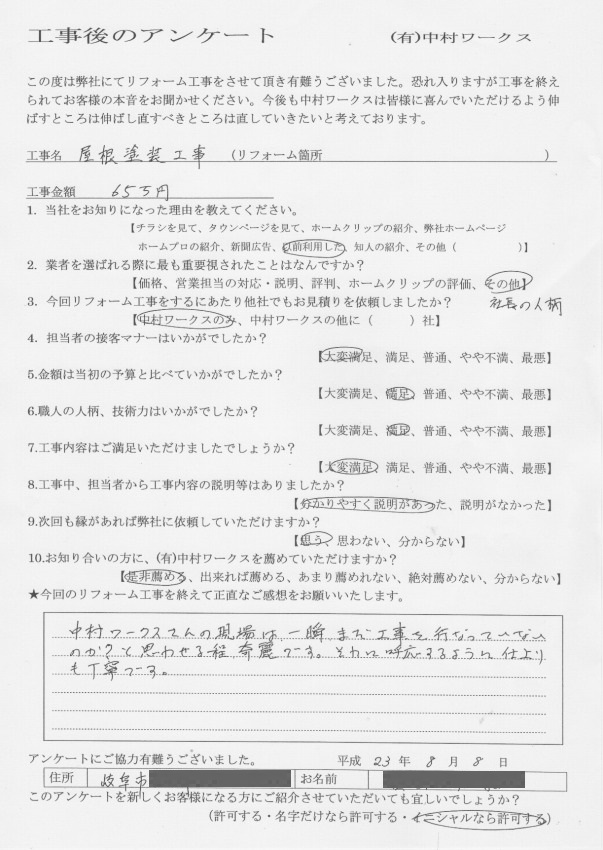 工事後のアンケート (有)中村ワークス
この度は弊社にてリフォーム工事をさせて頂き有難うございました。恐れ入りますが工事を終え
られてお客様の本音をお聞かせください。今後も中村ワークスは皆様に喜んでいただけるよう伸
ばすところは伸ばし直すべきところは直していきたいと考えております。
工事名 屋根塗装工事 (リフォーム箇所 )
工事金額 65万円
1. 当社をお知りになった理由を教えてください。
【チラシを見て、タウンページを見て、ホームクリップの紹介、弊社ホームページ
ホームプロの紹介、新聞広告、以前利用した、知人の紹介、その他( )】
2. 業者を選ばれる際に最も重要視されたことはなんですか?
【価格、営業担当の対応・説明、評判、ホームクリップの評価、その他】
3. 今回リフォーム工事をするにあたり他社でもお見積りを依頼しましたか? 社長の人柄
【中村ワークスのみ、中村ワークスの他に( )社】
4. 担当者の接客マナーはいかがでしたか?
【大変満足、満足、普通、やや不満、最悪】
5.金額は当初の予算と比べていかがでしたか?
【大変満足、満足、普通、やや不満、最悪】
6.職人の人柄、技術力はいかがでしたか?
【大変満足、満足、普通、やや不満、最悪】
7.工事内容はご満足いただけましたでしょうか?
【大変満足、満足、普通、やや不満、最悪】
8.工事中、担当者から工事内容の説明等はありましたか?
【分かりやすく説明があった、説明がなかった】
9.次回も縁があれば弊社に依頼していただけますか?
【思う、思わない、分からない】
10.お知り合いの方に、(有)中村ワークスを薦めていただけますか?
【是非薦める、出来れば薦める、あまり薦めれない、絶対薦めない、分からない】
★今回のリフォーム工事を終えて正直なご感想をお願いいたします。
中村ワークスさんの現場は一瞬まだ工事を行なっていない
のか?と思わせる程奇麗です。それに呼応するように仕上り
も丁寧です。
アンケートにご協力有難うございました。 平成 23 年 8 月 8 日
住所 岐阜市 お名前
このアンケートを新しくお客様になる方にご紹介させていただいても宜しいでしょうか?
(許可する・名字だけなら許可する・イニシャルなら許可する)